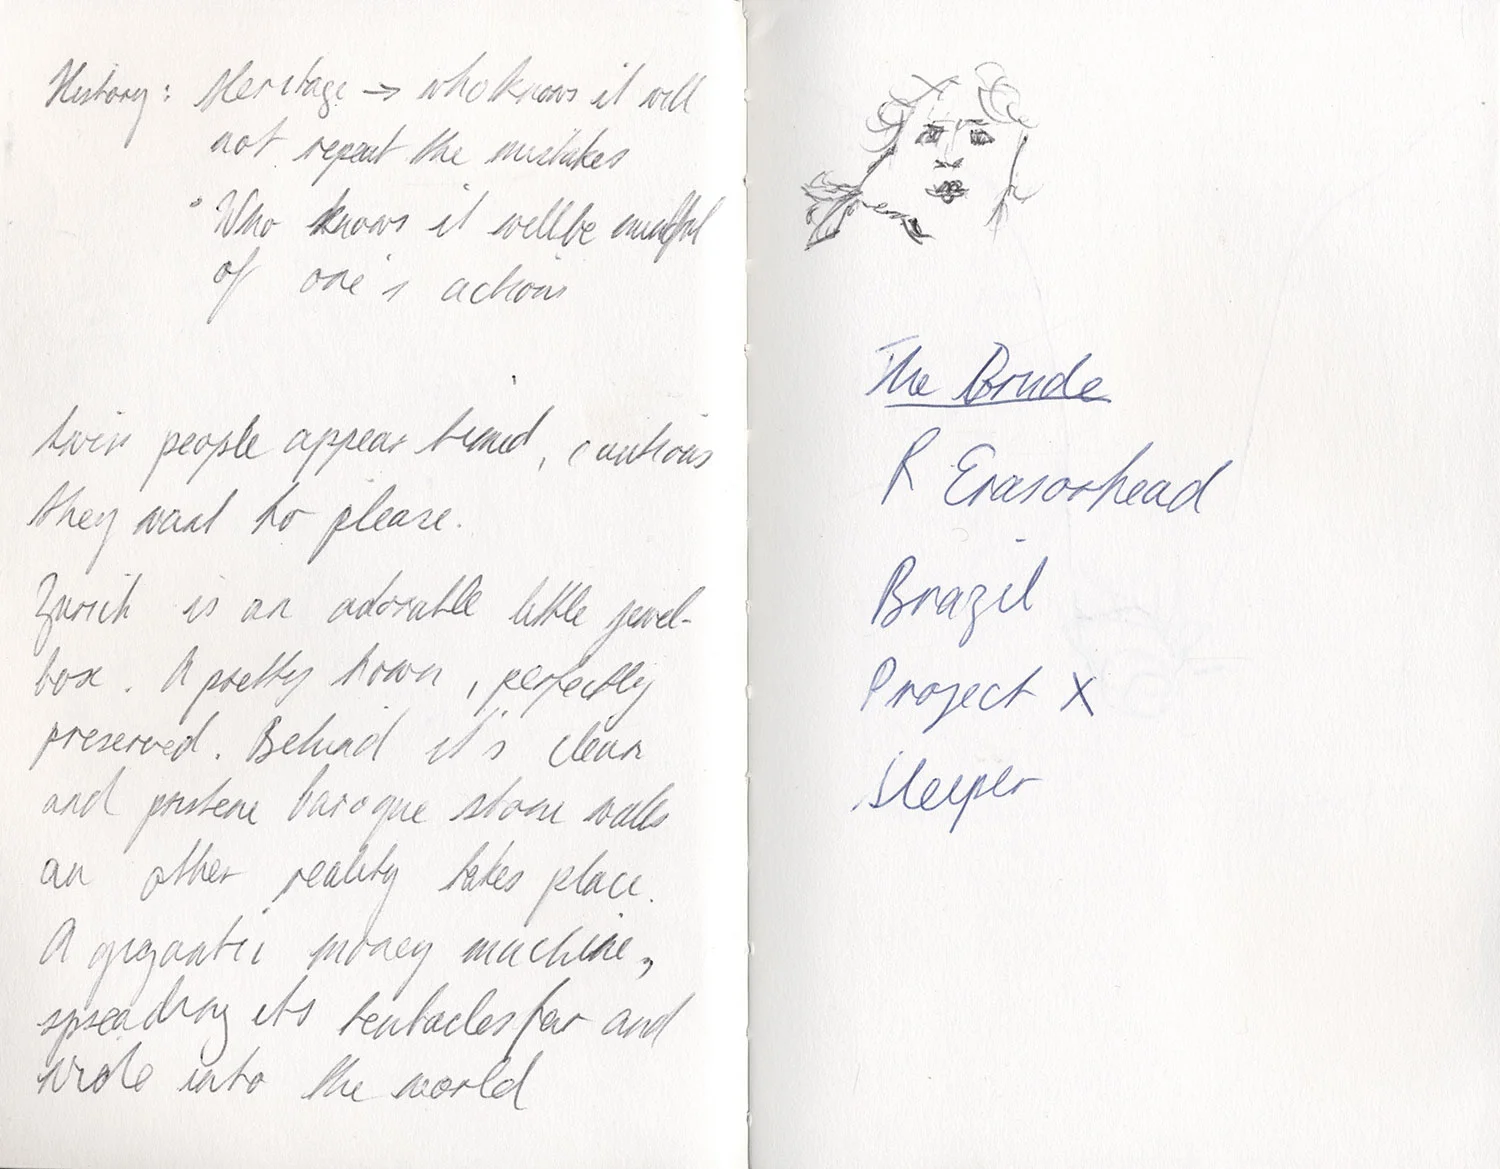 History: Heritage → who knows it will
not repeat the mistakes
• Who knows it will be mindful
of one's actions
people appear timid, cautious
they want to please.
Zurich is an adorable little jewel-
box. A pretty town, perfectly
preserved. Behind it's clean
and pristene baroque stone walls
an other reality takes place.
A gigantic money machine,
spreading its tentacles far and
wide into the world
The Brude
R Erasorhead
Brazil
Project X
Sleeper